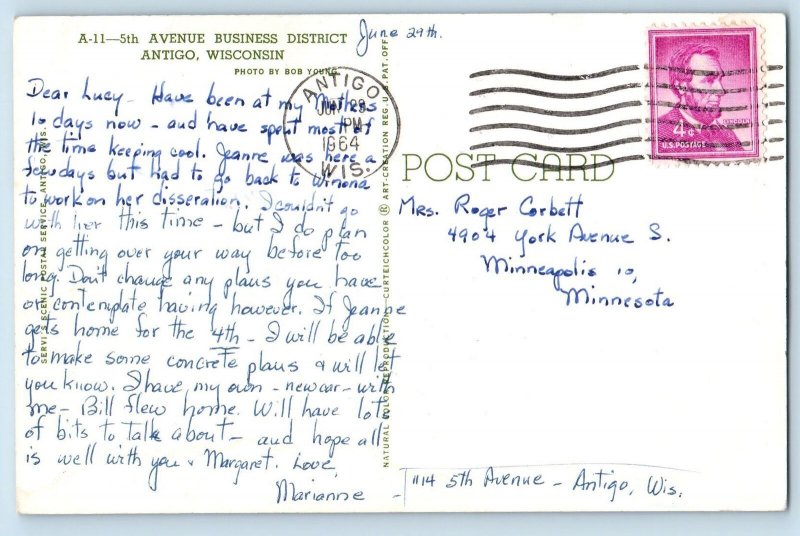 A-11—5th AVENUE BUSINESS DISTRICT
ANTIGO, WISCONSIN
PHOTO BY BOB YOUNG
June 29th.
Dear Lucy - Have been at my Mothers
10 days now - and have spent most of
the time keeping cool. Jeanne was here a
few days but had to go back to Winona
to work on her disseration. I couldn't go
with her this time - but I do plan
on getting over your way before too
long. Don't change any plans you have
or contemplate having however. If Jeanne
gets home for the 4th - I will be able
to make some concrete plans & will let
you know. I have my own - new car - with
me - Bill flew home. Will have lots
of bits to talk about - and hope all
is well with you & Margaret. Love,
Marianne -
1114 5th Avenue - Antigo, Wis.
ANTIGO
JUN 29
PM
1964
WIS.
4¢
LINCOLN
U.S. POSTAGE
POST CARD
Mrs. Roger Corbett
4904 York Avenue S.
Minneapolis 10,
Minnesota
SERVICE SCENIC POSTAL SERVICE, ANTIGO, WIS.
NATURAL COLOR REPRODUCTION—CURTEICHCOLOR ® ART-CREATION REG. U.S. PAT. OFF.